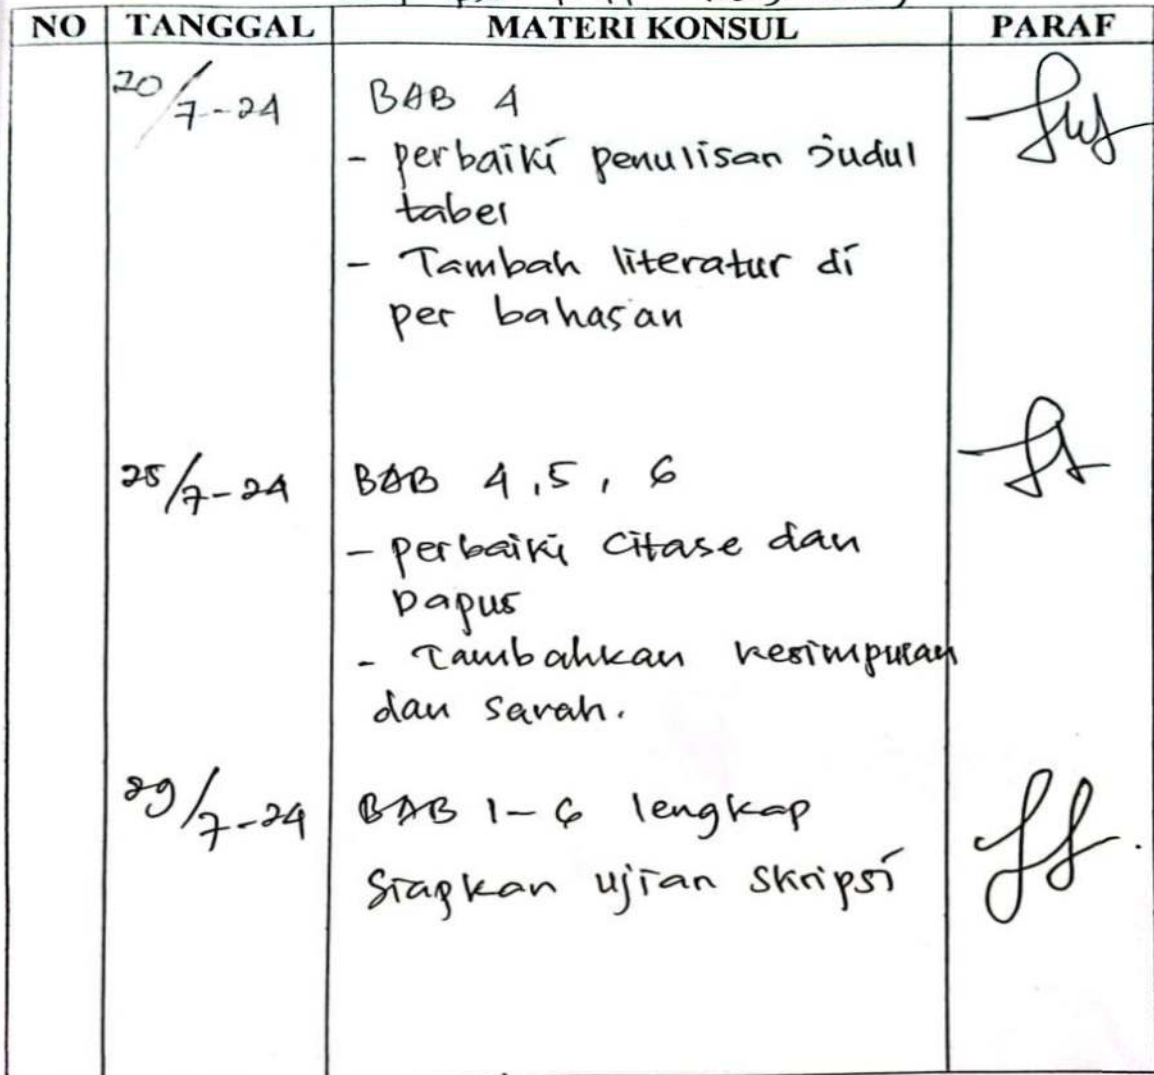 NO TANGGAL MATERI KONSUL PARAF
20/7-24 BAB 4
- perbaiki penulisan judul
tabel
- Tambah literatur di
per bahasan
25/7-24 BAB 4, 5, 6
- perbaiki citase dan
Dapus
- Tambahkan kesimpulan
dan sarah.
29/7-24 BAB 1-6 lengkap
Siapkan ujian skripsi